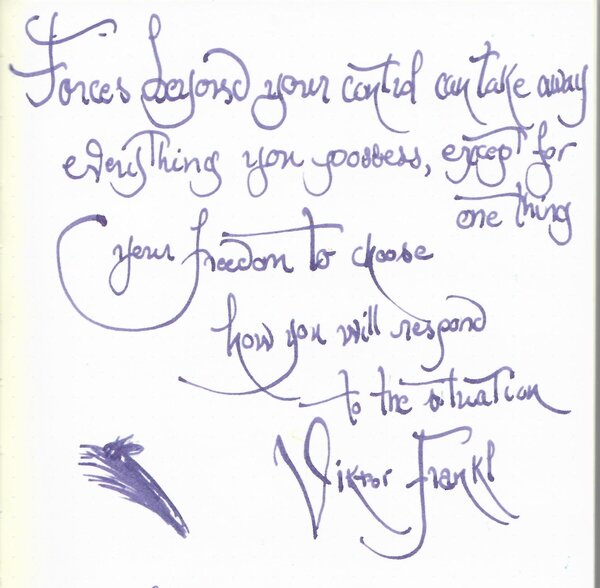 Forces beyond your control can take away
everything you possess, except for
one thing
your freedom to choose
how you will respond
to the situation
Viktor Frankl